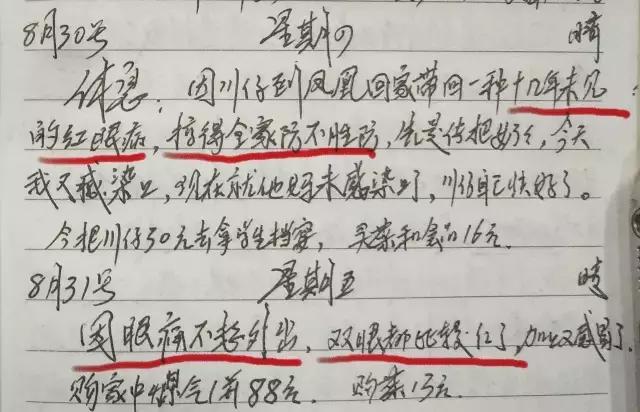 8月30号 星期四 晴
休息：因川仔到凤凰回家带回一种十几年未见
的红眼病，搞得全家防不胜防，先是传把好了，今天
我又感染上，现在就他妈未感染了，川仔自己快好了。
今把川仔50元去拿学生档案，买菜和食品16元。
8月31号 星期五 晴
因眼病不想外出，双眼都比较红了，加上又感冒了
购家中煤气1瓶88元。 购菜13元。